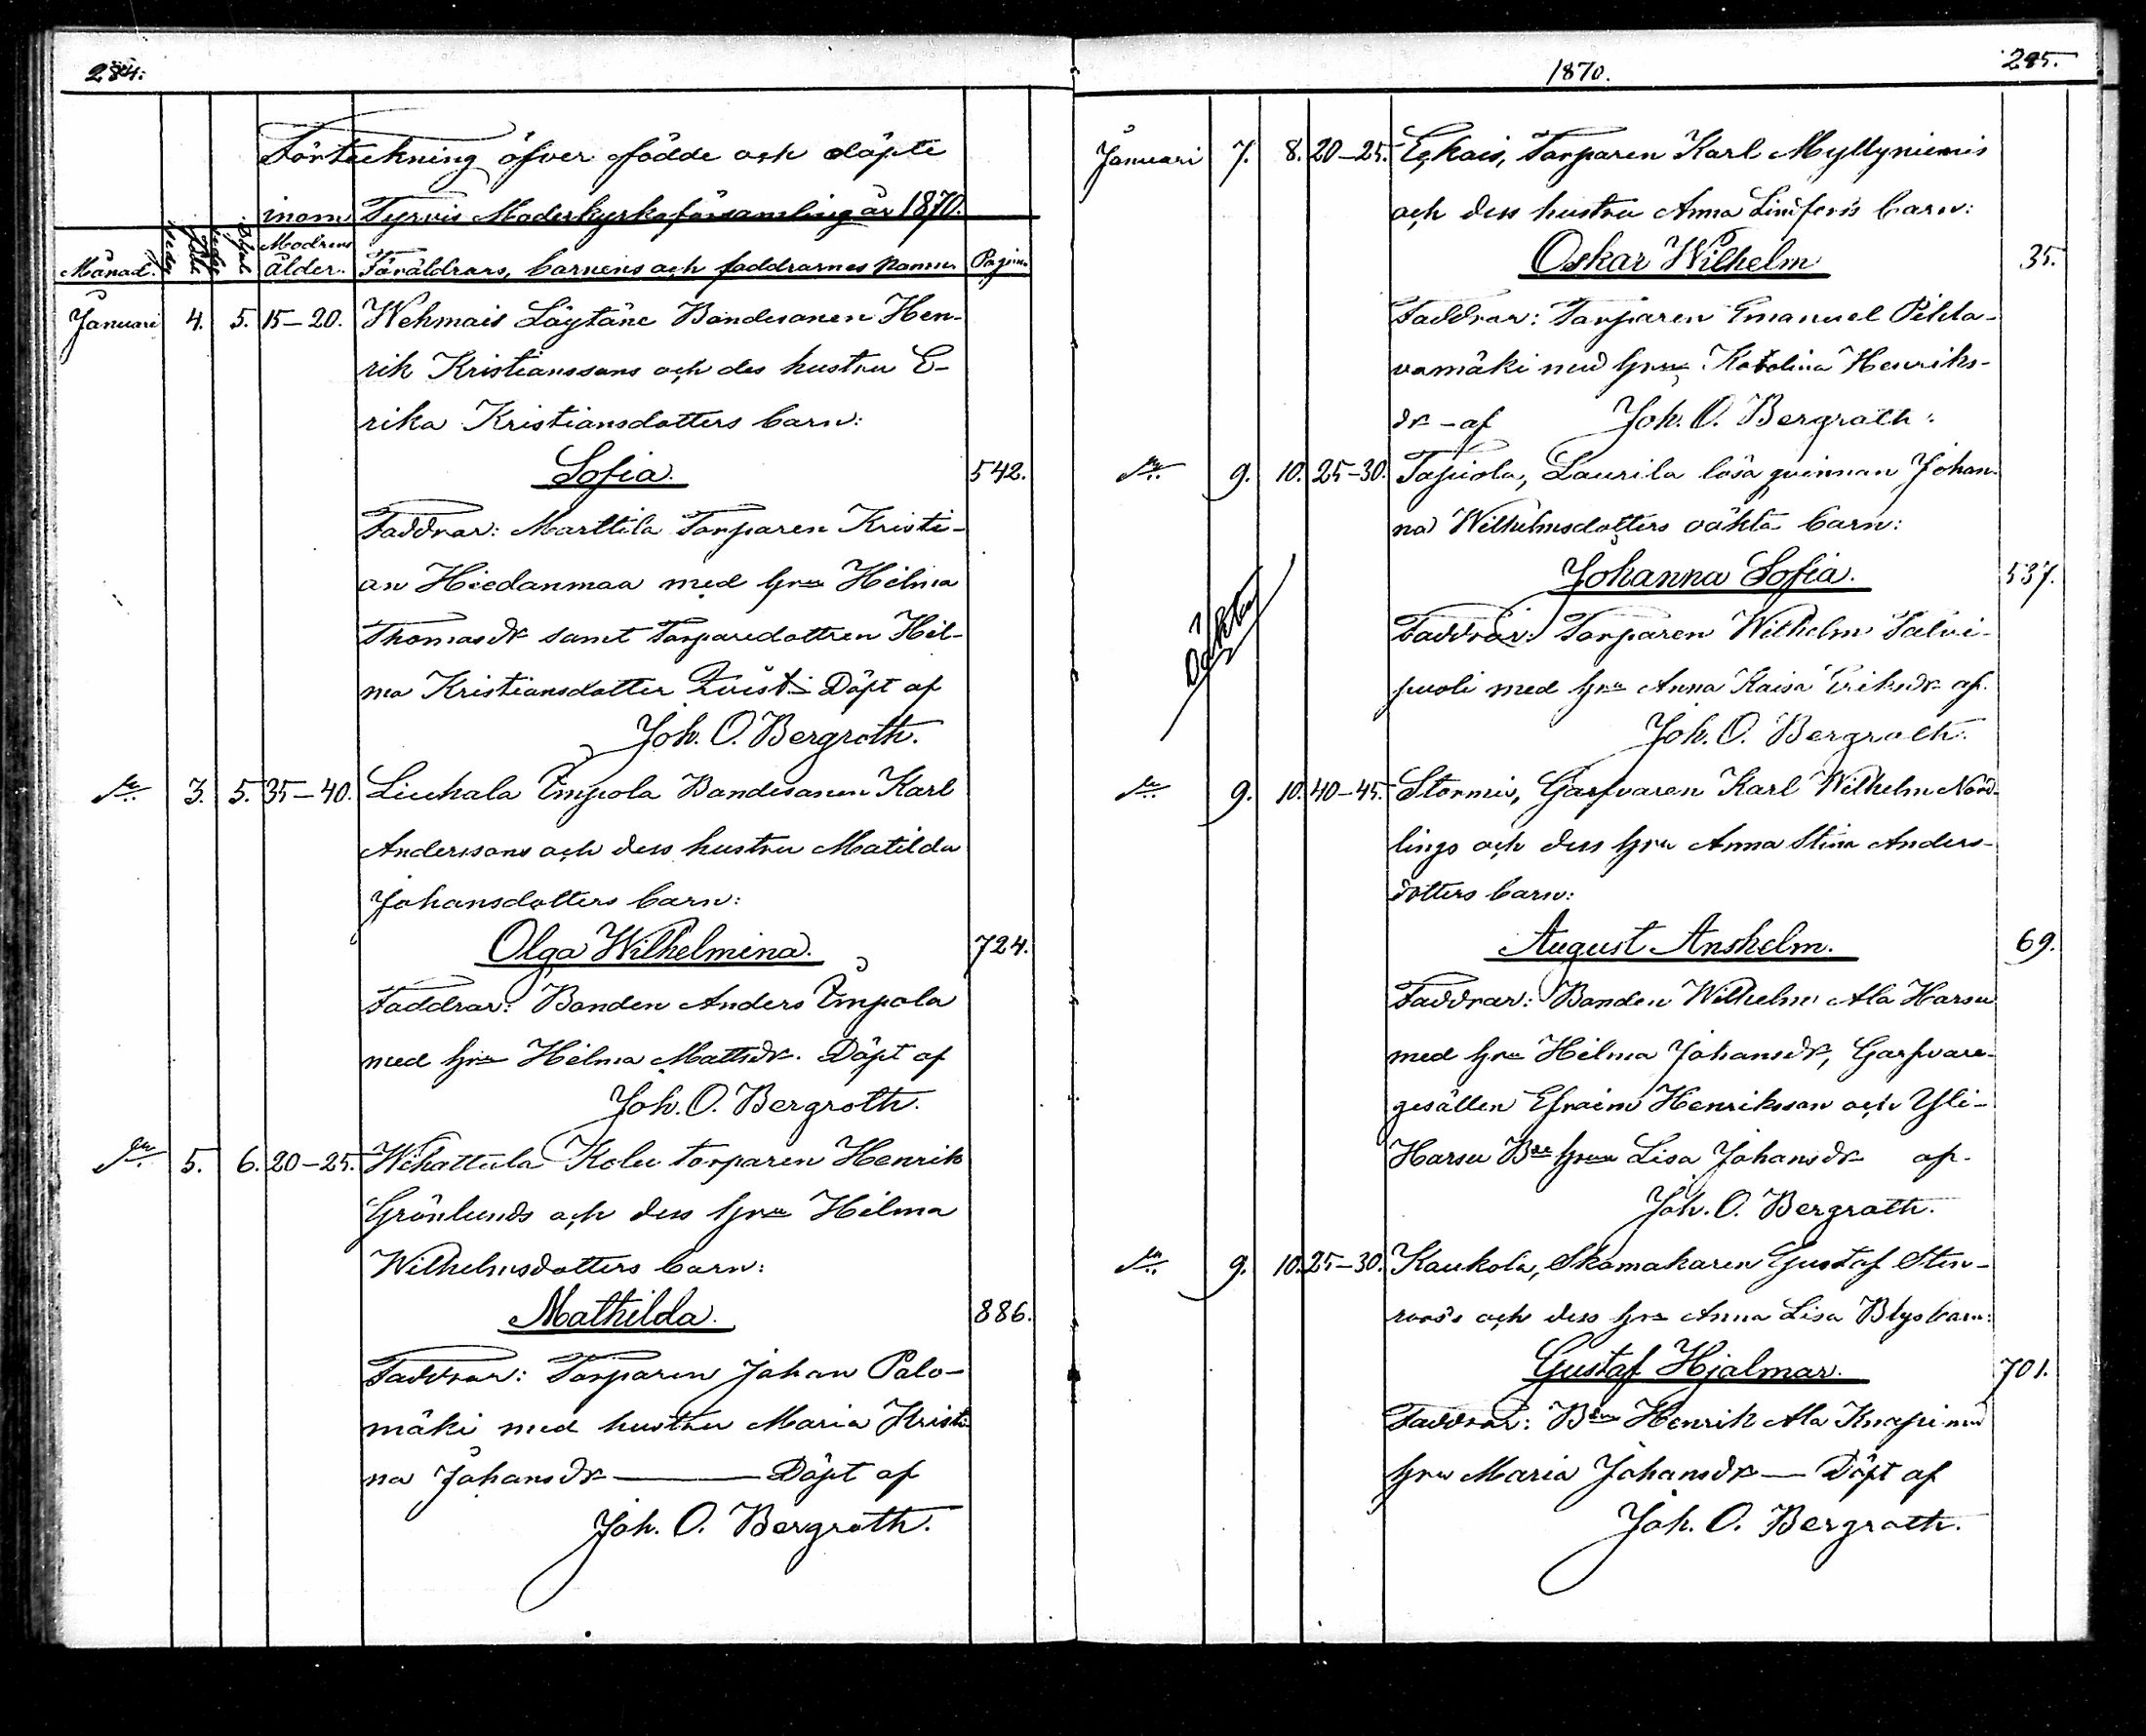 284.
Förteckning öfver födde och döpte
inom Tyrvis Moderkyrkoförsamling år 1870.
Månad. Född Döpt Modrens ålder. Föräldrars, barnens och faddrarnes namn. Pagina
Januari 4. 5. 15–20. Wehmais Löytäne Bondesonen Hen-
rik Kristianssons och des hustru E-
rika Kristiansdotters barn:
Sofia. 542.
Faddrar: Marttila Torparen Kristi-
an Hiedanmaa med hru Hilma
Thomasdr samt Torparedottren Hil-
ma Kristiansdotter Qvist – Döpt af
Joh. O. Bergroth.
3. 5. 35–40. Liuhala Impola Bondesonen Karl
Anderssons och dess hustru Matilda
Johansdotters barn:
Olga Wilhelmina. 724.
Faddrar: Bonden Anders Impola
med hru Hilma Mattsdr. Döpt af
Joh. O. Bergroth.
5. 6. 20–25. Wihattula Kolu torparen Henrik
Grönlunds och dess hru Hilma
Wilhelmsdotters barn:
Mathilda. 886.
Faddrar: Torparen Johan Palo-
mäki med hustru Maria Kristi
na Johansdr — Döpt af
Joh. O. Bergroth.
1870. 285.
Januari 7. 8. 20–25. Torparen Karl Myllyniemis
och dess hustru Anna barn:
Oskar Wilhelm 35.
Faddrar: Torparen Emanuel
vamäki med hru Katolina Henriks-
dr – af Joh. O. Bergroth.
9. 10. 25–30. Tapiola, Laurila lösa qvinnan Johan-
na Wilhelmsdotters oäkta barn:
Johanna Sofia. 537.
Oäkta
Faddrar: Torparen Wilhelm Talvi-
puoli med hru Anna Kaisa Eriksdr af
Joh. O. Bergroth.
9. 10. 40–45. Stormi, Garfvaren Karl Wilhelm Nord-
lings och dess hru Anna Stina Anders-
dotters barn:
August Anshelm. 69.
Faddrar: Bonden Wilhelm Ala Harsu
med hru Hilma Johansdr, Garfvare-
gesällen Efraim Henriksson och Yli-
Harsu Bde hrun Lisa Johansdr af
Joh. O. Bergroth.
9. 10. 25–30. Kaukola, Skomakaren Gustaf Sten-
roos's och dess hru Anna Lisa Blys barn:
Gustaf Hjalmar. 701.
Faddrar: Bden Henrik Ala Knapi med
hru Maria Johansdr — Döpt af
Joh. O. Bergroth.